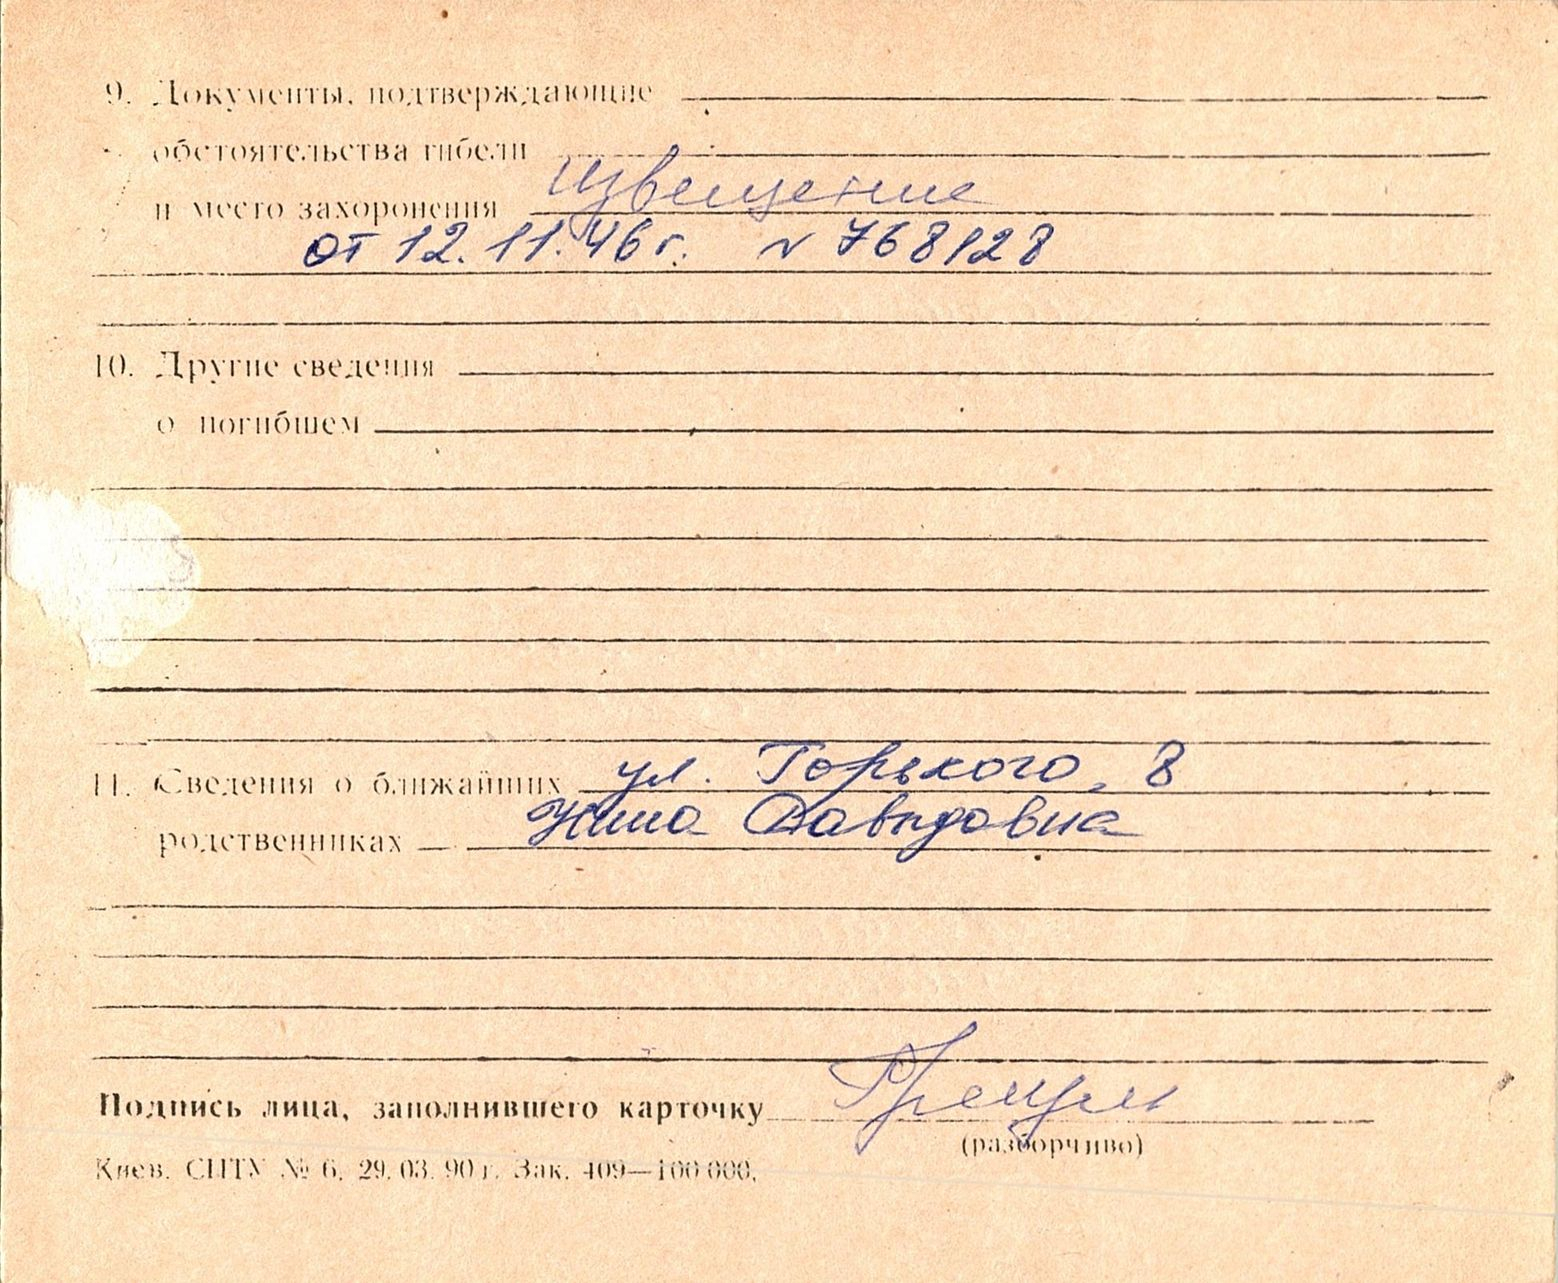 9. Документы, подтверждающие
обстоятельства гибели
и место захоронения извещение
от 12.11.46 г. N 768128
10. Другие сведения
о погибшем
11. Сведения о ближайших ул. Горького, 8
родственниках Нина Давыдовна
Подпись лица, заполнившего карточку
(разборчиво)
Киев. СПТУ № 6. 29.03.90 г. Зак. 409—100 000.